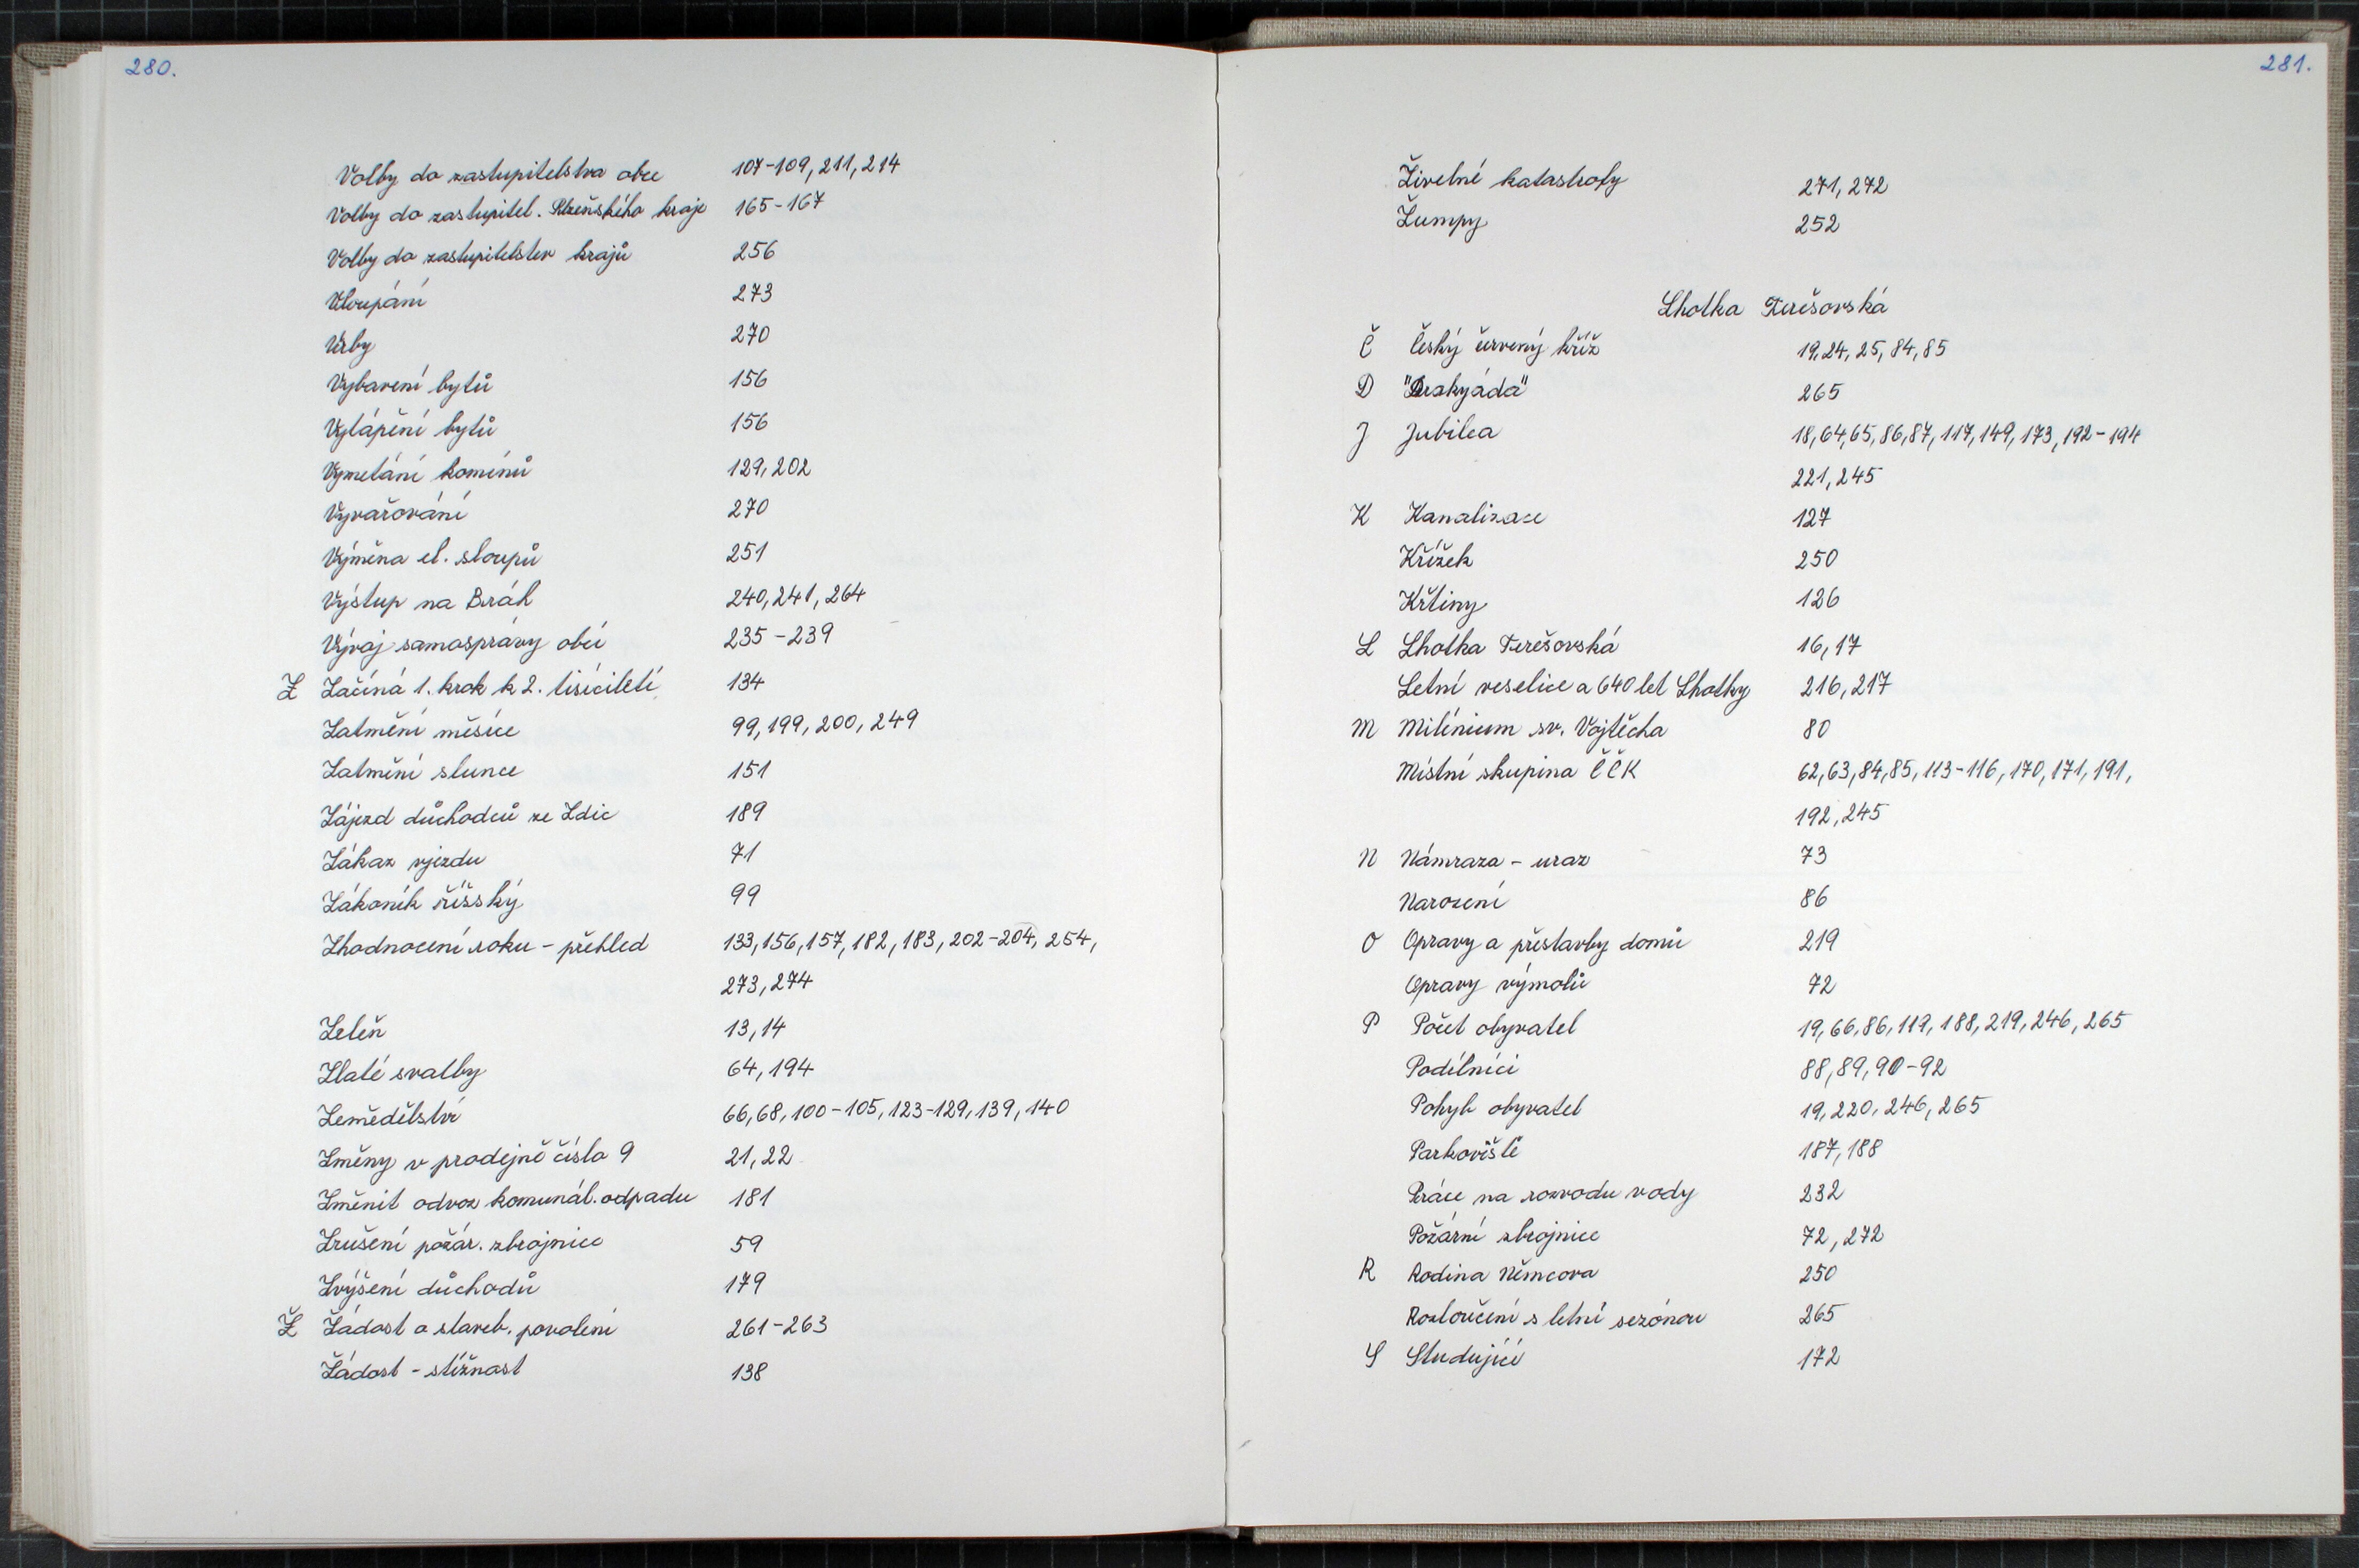 280.
Volby do zastupitelstva obce 107-109, 211, 214
Volby do zastupitel. Plzeňského kraje 165-167
Volby do zastupitelstev krajů 256
Vloupání 273
Vrby 270
Vybavení bytů 156
Vytápění bytů 156
Vymetání komínů 129, 202
Vyvařování 270
Výměna el. sloupů 251
Výstup na Brdh 240, 241, 264
Vývoj samosprávy obcí 235-239
Z Začíná 1. krok k 2. tisíciletí 134
Zatmění měsíce 99, 199, 200, 249
Zatmění slunce 151
Zájezd důchodců ze Zdic 189
Zákaz vjezdu 71
Zákoník říšský 99
Zhodnocení roku - přehled 133, 156, 157, 182, 183, 202-204, 254,
273, 274
Zeleň 13, 14
Zlaté svatby 64, 194
Zemědělství 66, 68, 100-105, 123-129, 139, 140
Změny v prodejně číslo 9 21, 22
Změnit odvoz komunál. odpadu 181
Zrušení požár. zbrojnice 59
Zvýšení důchodů 179
Ž Žádost o staveb. povolení 261-263
Žádost - stížnost 138
281.
Živelné katastrofy 271, 272
Žumpy 252
Lhotka Terešovská
Č Český červený kříž 19, 24, 25, 84, 85
D "Drakyáda" 265
J Jubilea 18, 64, 65, 86, 87, 117, 149, 173, 192-194
221, 245
K Kanalizace 127
Křížek 250
Křtiny 126
L Lhotka Terešovská 16, 17
Letní veselice a 640 let Lhotky 216, 217
M Milénium sv. Vojtěcha 80
Místní skupina ČČK 62, 63, 84, 85, 113-116, 170, 171, 191,
192, 245
N Námraza - uraz 73
Narození 86
O Opravy a přestavby domů 219
Opravy výmolů 72
P Počet obyvatel 19, 66, 86, 119, 188, 219, 246, 265
Podílníci 88, 89, 90-92
Pohyb obyvatel 19, 220, 246, 265
Parkoviště 187, 188
Práce na rozvodu vody 232
Požární zbrojnice 72, 272
R Rodina Němcova 250
Rozloučení s letní sezónou 265
S Studující 172